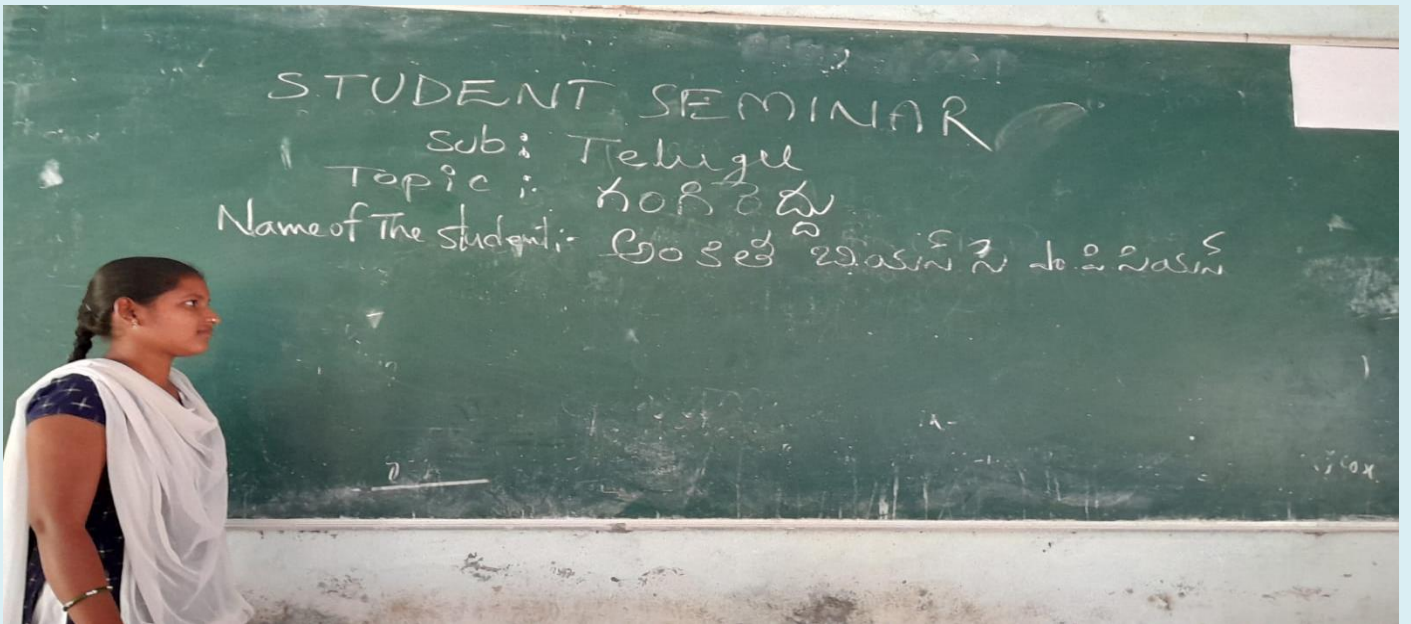 STUDENT SEMINAR
Sub: Telugu
Topic :- గంగిరెద్దు
Name of The student:- అంకిత బియస్సి యం.పి సియస్